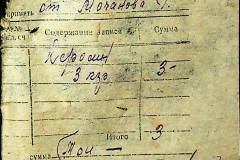 от Мочанова
Содержание записи
Сумма
Керосин
3 кгр
3-
Итого
3
сумма
Три —